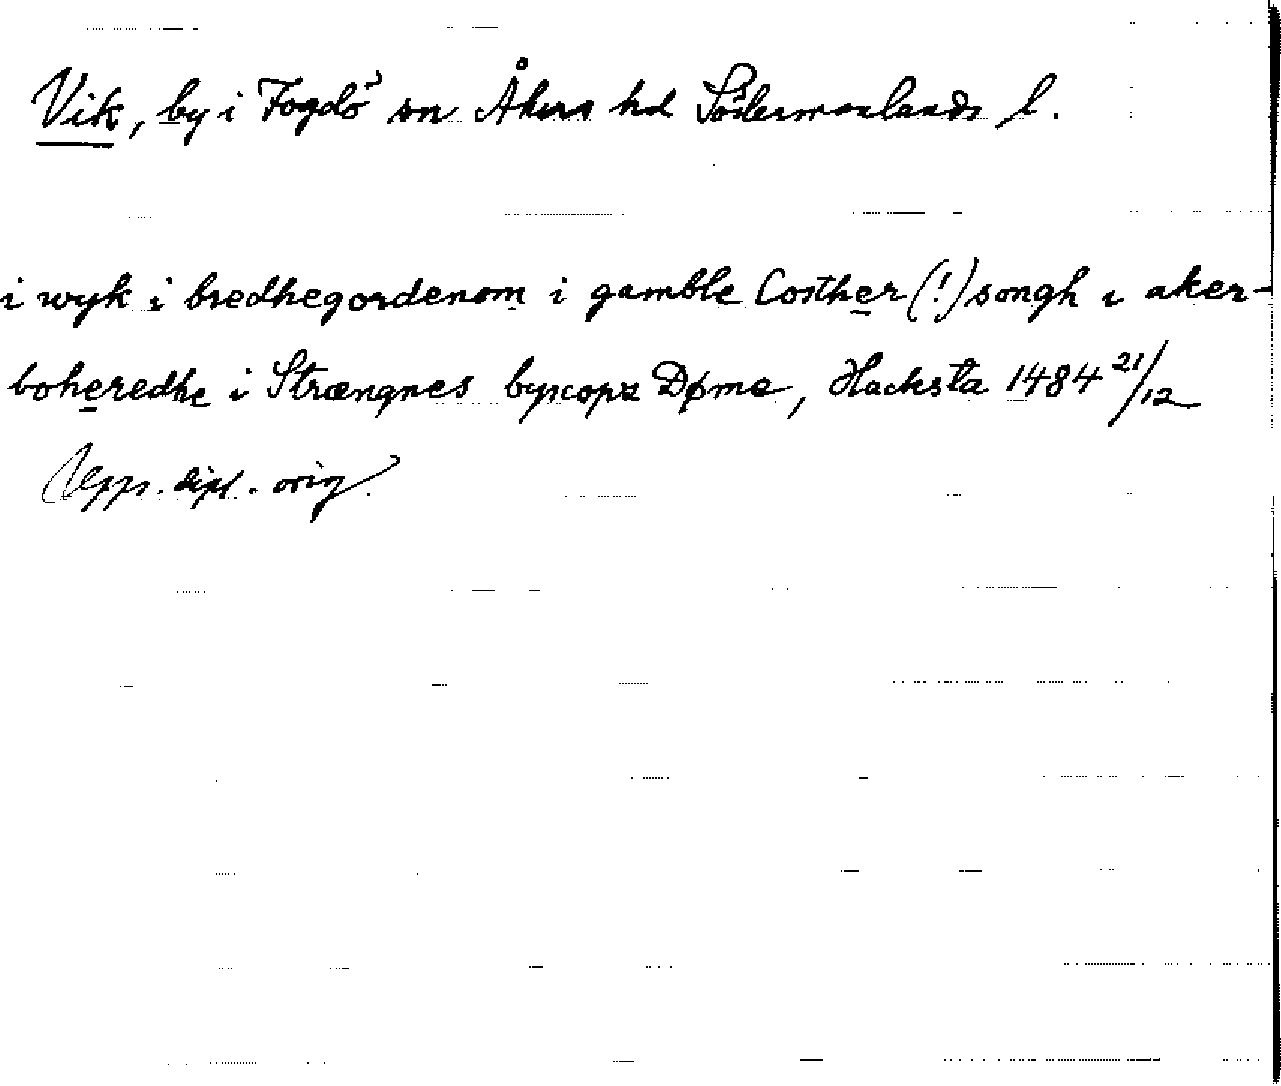 Vik, by i Fogdö sn Åkers hd Södermanlands l.
i wyk i bredhegordenom i gamble Costher(!)songh i aker-
boheredhe i Strængnes byscops Døme, Hacksta 1484 21/12
Upps. dipl. orig.